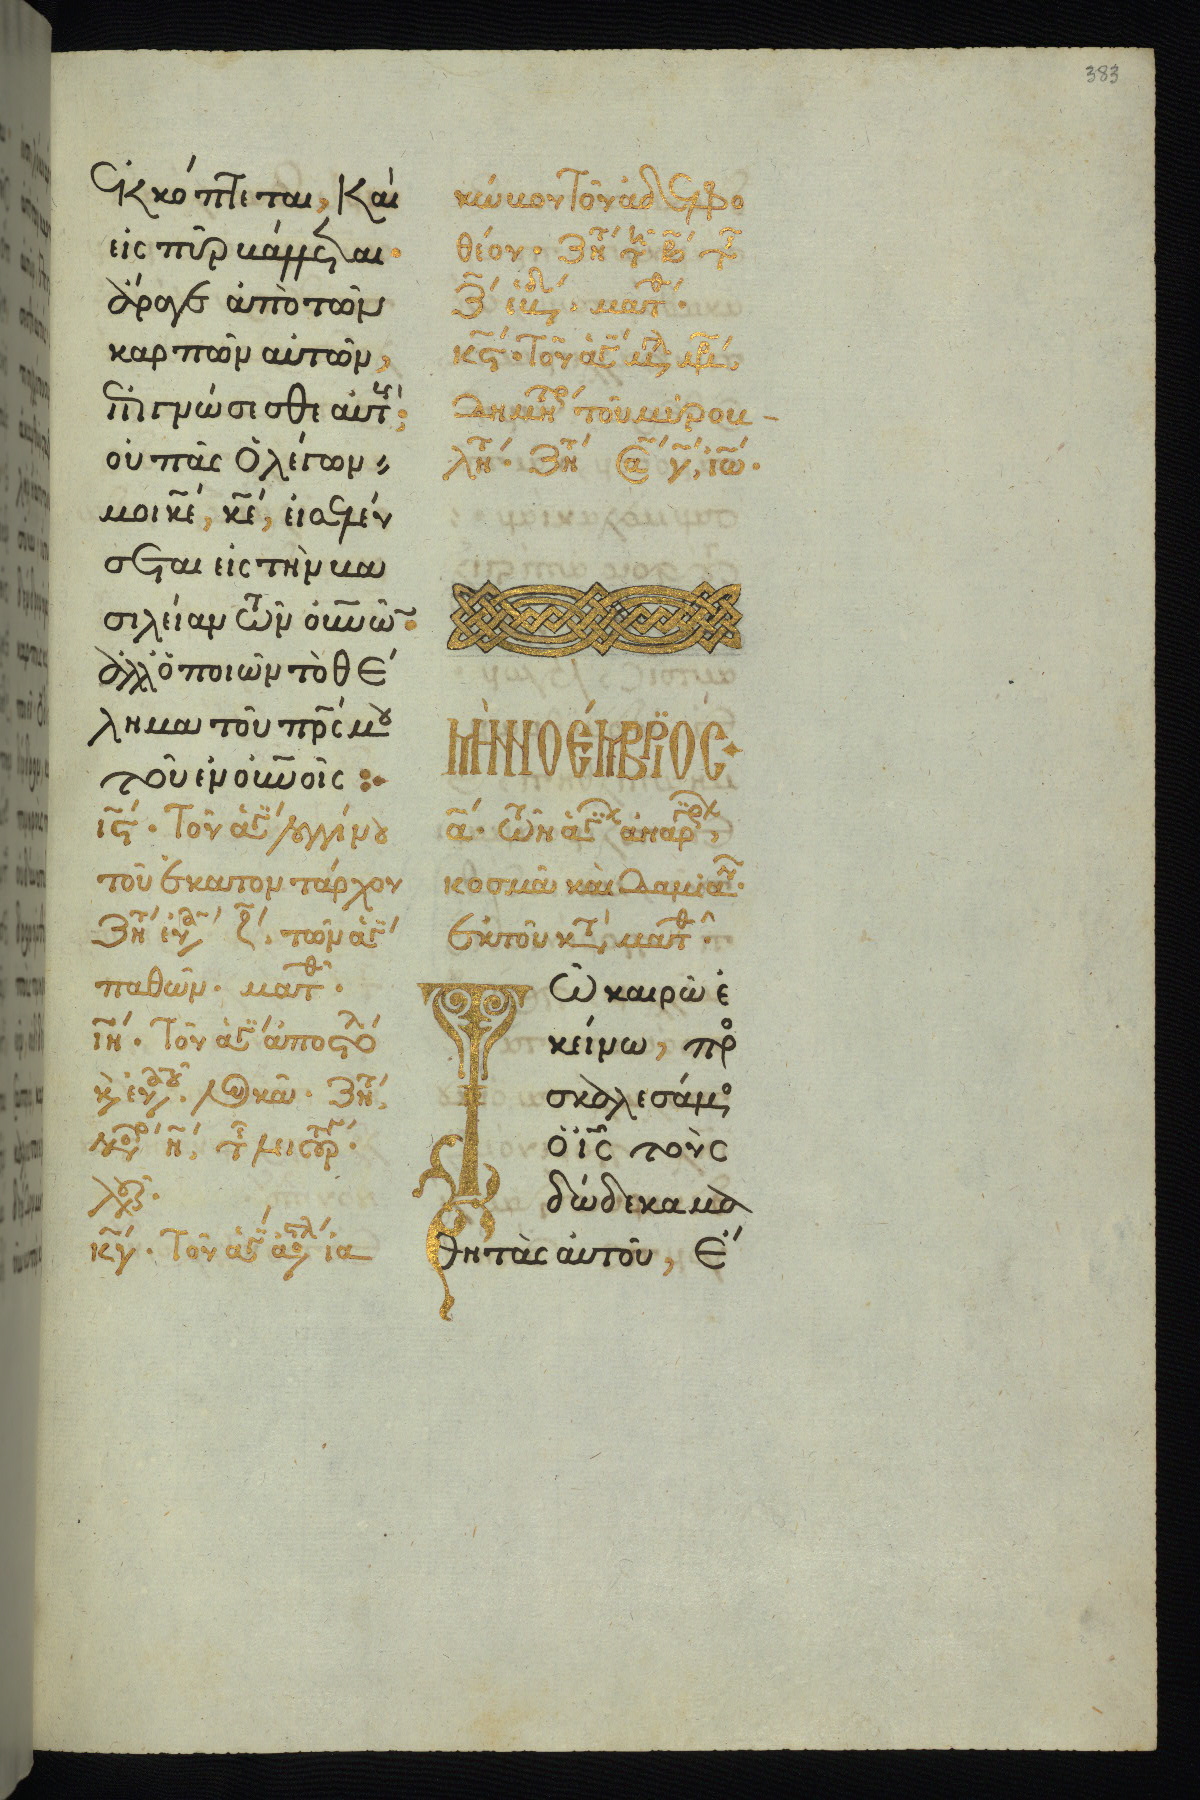 383
ἐκκόπτεται, καὶ
εἰς πῦρ βάλλεται·
ἄραγε ἀπὸ τῶν
καρπῶν αὐτῶν,
ἐπιγνώσεσθε αὐτ
οὐ πᾶς ὁ λέγων
μοι κε, κε, εἰσελεύ
σεται εἰς τὴν βα
σιλείαν τῶν οὐνῶν·
ἀλλ' ὁ ποιῶν τὸ θέ
λημα τοῦ πρς μου
τοῦ ἐν οὐνοῖς :·
ις· Τοῦ ἁγ λογγίνου
τοῦ ἑκατοντάρχου
ζητ τῶν ἁγ
παθῶν· ματθ·
ιη· Τοῦ ἁγ ἀποστόλου
κ εὐ λουκᾶ· ζητ
κγ· Τοῦ ἁγ ἀποστλ ἰα
κώβου τοῦ ἀδελφο
θέου· ζητ
ματθ·
κς· Τοῦ ἁγ
δημητρ τοῦ μυροβ
λητ· ζητ γ, ἰω·
ΜῊΝ ΝΟΈΜΒΡΙΟΣ
α· Τῶν ἁγ ἀναργ,
κοσμᾶ καὶ δαμιαν·
ἐκ τοῦ κτ ματθ·
Τῶ καιρῶ ἐ
κείνω, προ
σκαλεσάμενος
ὁ ις τοὺς
δώδεκα μα
θητὰς αὐτοῦ, ἔ